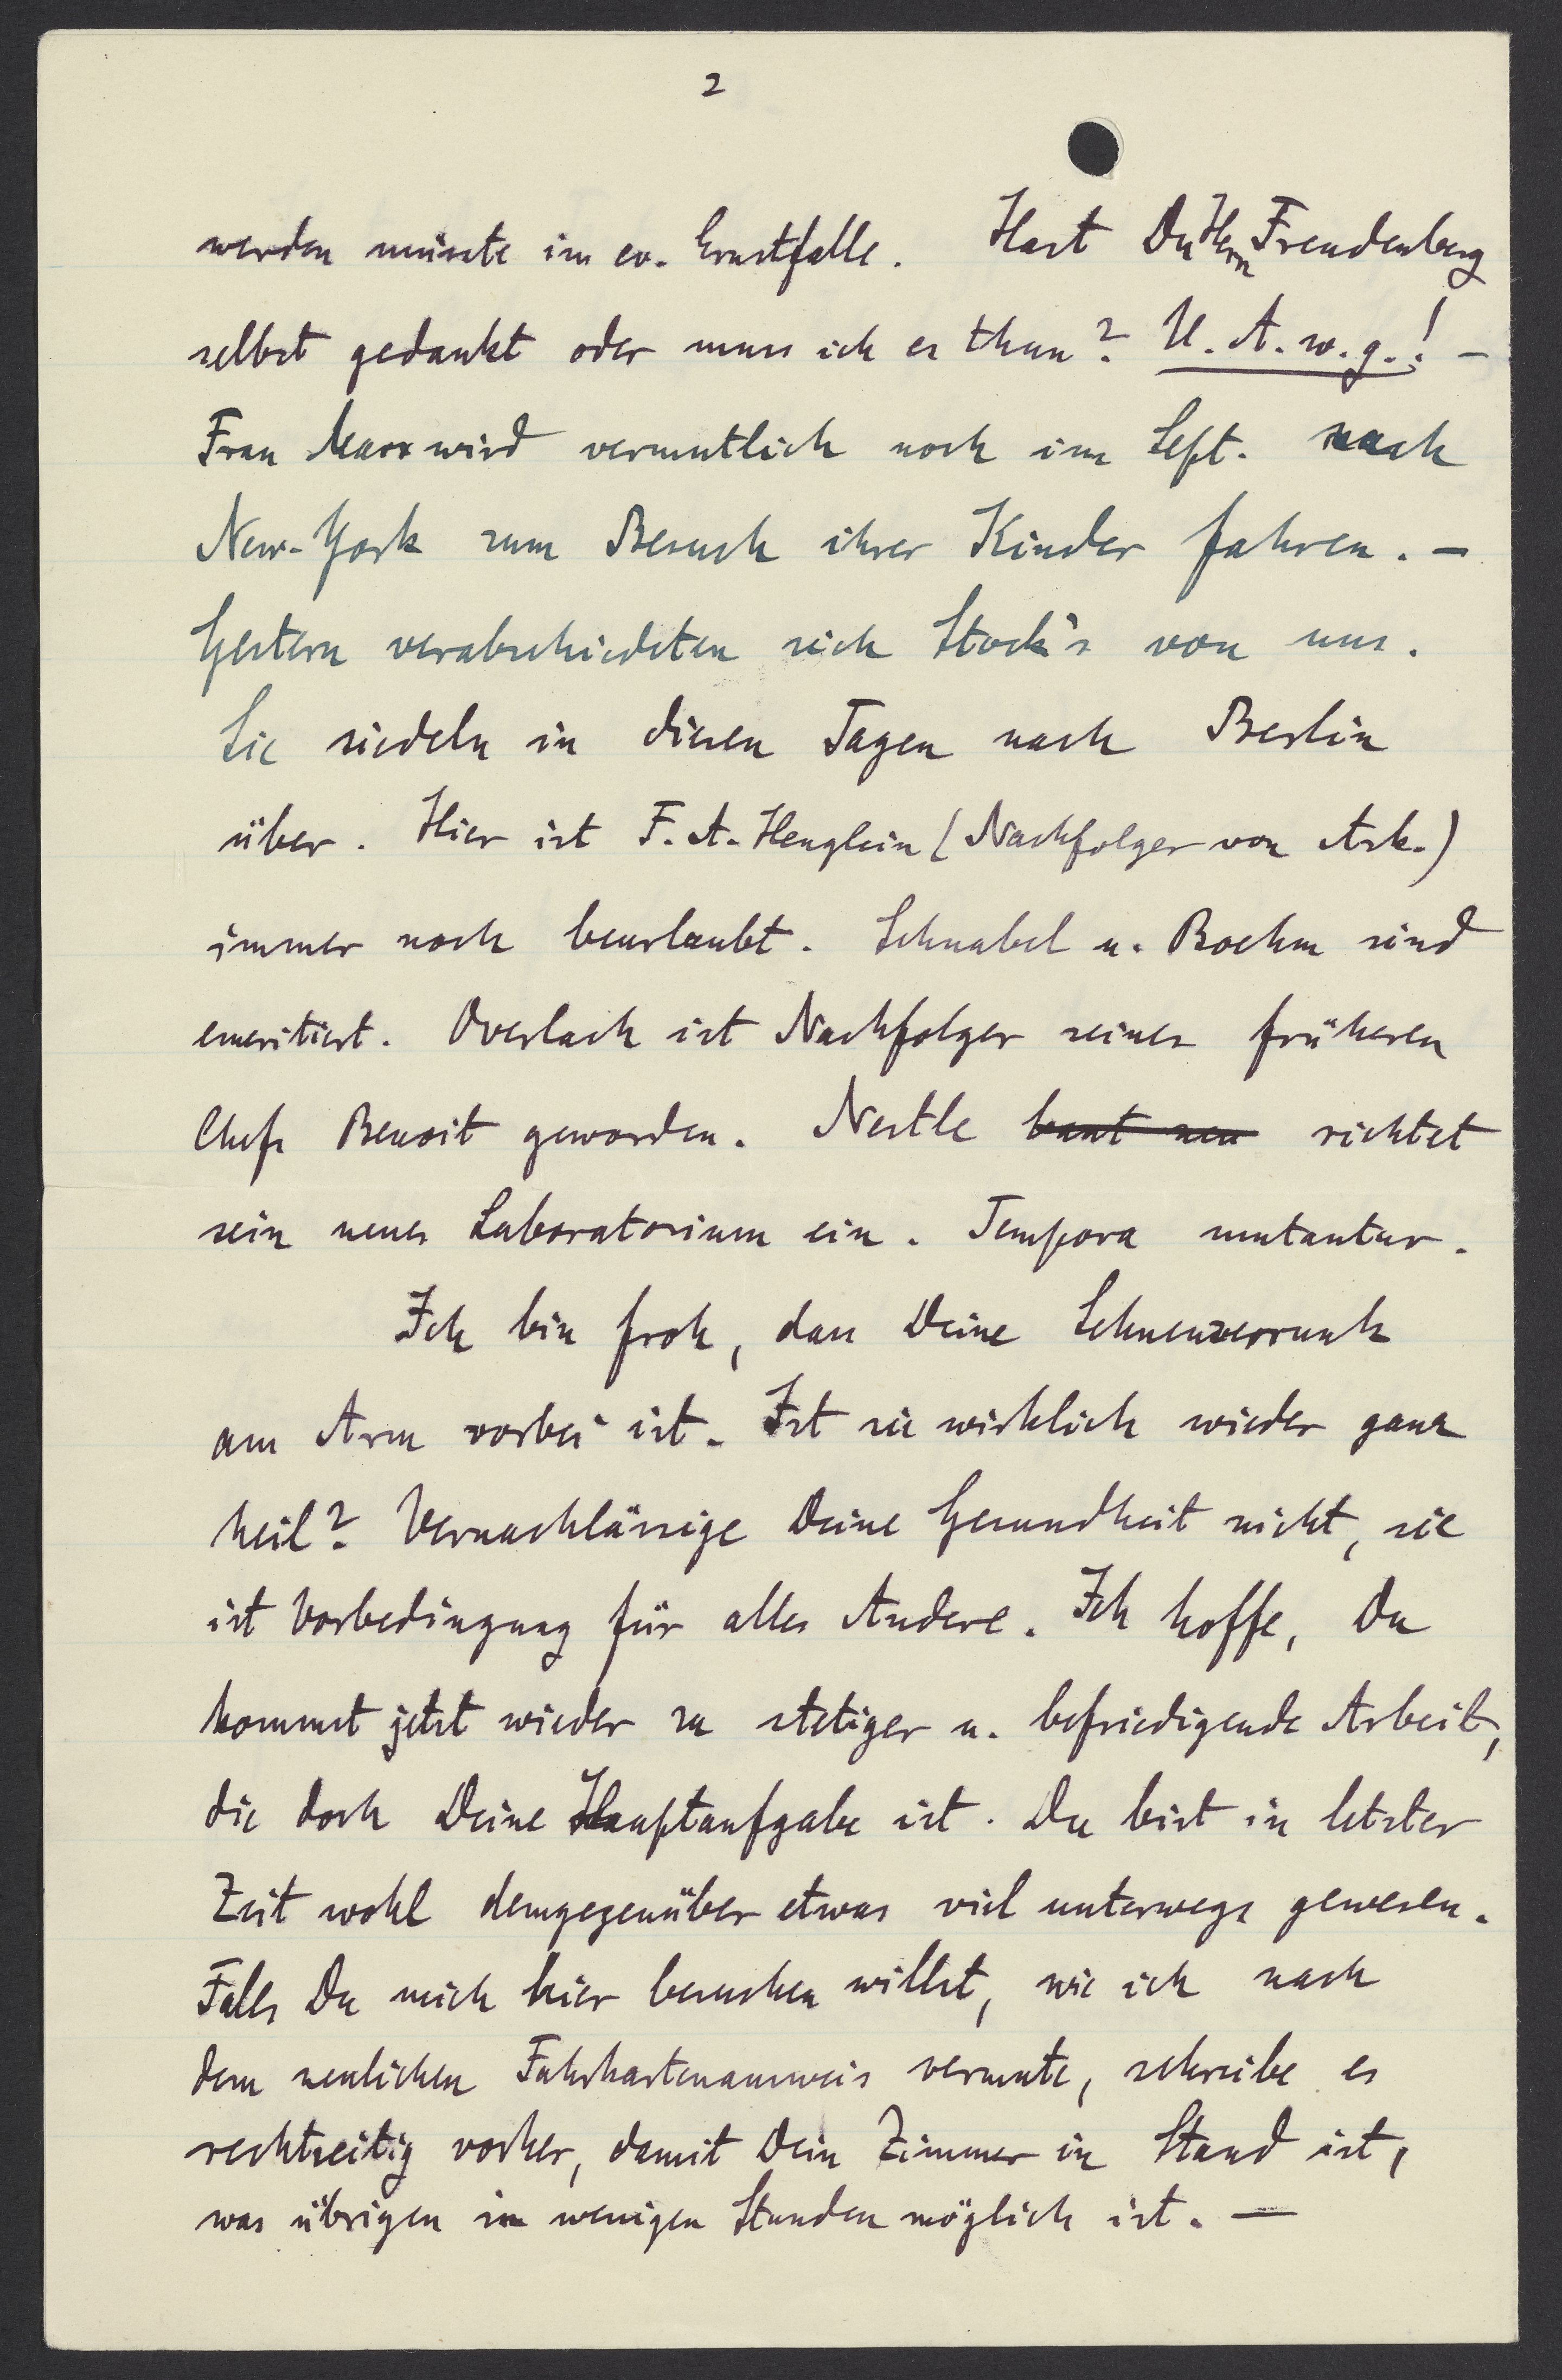 2
werden müsste im ev. Ernstfalle. Hast Du Herrn Freudenberg
selbst gedankt oder muss ich es thun? U. A. w. g.! –
Frau Marx wird vermutlich noch im Sept. nach
New-York zum Besuch ihrer Kinder fahren. –
Gestern verabschiedeten sich Stock's von uns.
Sie siedeln in diesen Tagen nach Berlin
über. Hier ist F. A. Henglein (Nachfolger von Ask.)
immer noch beurlaubt. Schnabel u. Boehm sind
emeritiert. Overlach ist Nachfolger seines früheren
Chefs Benoit geworden. Nestle baut neu richtet
sein neues Laboratorium ein. Tempora mutantur.
Ich bin froh, dass Deine Sehnenzerrung
am Arm vorbei ist. Ist sie wirklich wieder ganz
heil? Vernachlässige Deine Gesundheit nicht, sie
ist Vorbedingung für alles Andere. Ich hoffe, Du
kommst jetzt wieder zu stetiger u. befriedigende Arbeit,
die doch Deine Hauptaufgabe ist. Du bist in letzter
Zeit wohl demgegenüber etwas viel unterwegs gewesen.
Falls Du mich hier besuchen willst, wie ich nach
dem neulichen Fahrkartenausweis vermute, schreibe es
rechtzeitig vorher, damit Dein Zimmer in Stand ist,
was übrigen in wenigen Stunden möglich ist. —